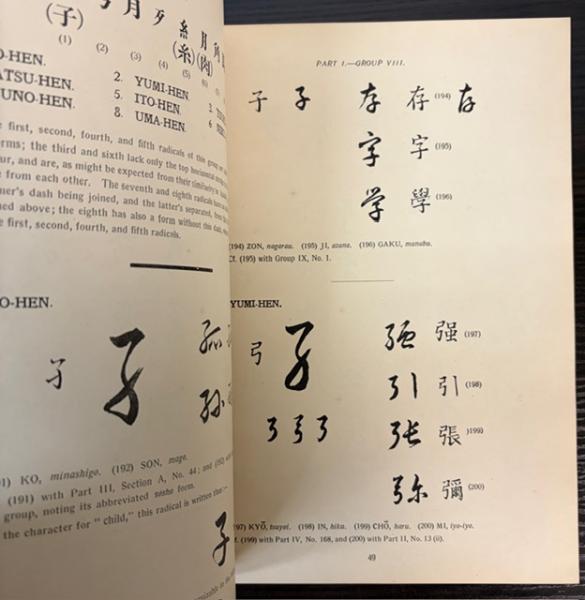 (子)
(糸)(肉)
(1) (2) (3) (4) (5) (6)
O-HEN.
ATSU-HEN. 2. YUMI-HEN.
UNO-HEN. 5. ITO-HEN.
8. UMA-HEN.
first, second, fourth, and fifth radicals of this group
rms; the third and sixth lack only the top horizontal
ur, and are, as might be expected from their similarity
from each other. The seventh and eighth radicals
mer's dash being joined, and the latter's separated,
ned above; the eighth has also a form without this dash,
first, second, fourth, and fifth radicals.
O-HEN.
子
孫
91) KO, minashigo. (192) SON, mago.
(191) with Part III, Section A, No. 44; and
group, noting its abbreviated sosho form.
the character for "child," this radical is written thus:—
子
PART I.—GROUP VIII.
子 子 存 存 (194) 存
字 字 (195)
学 學 (196)
(194) ZON, nagarau. (195) JI, azana. (196) GAKU, manabu.
Cf. (195) with Group IX, No. 1.
YUMI-HEN.
弓
强 强 (197)
引 引 (198)
张 張 (199)
弥 彌 (200)
(197) KYŌ, tsuyoi. (198) IN, hiku. (199) CHŌ, haru. (200) MI, iyo-iyo.
f. (199) with Part IV, No. 168, and (200) with Part II, No. 13 (ii).
49